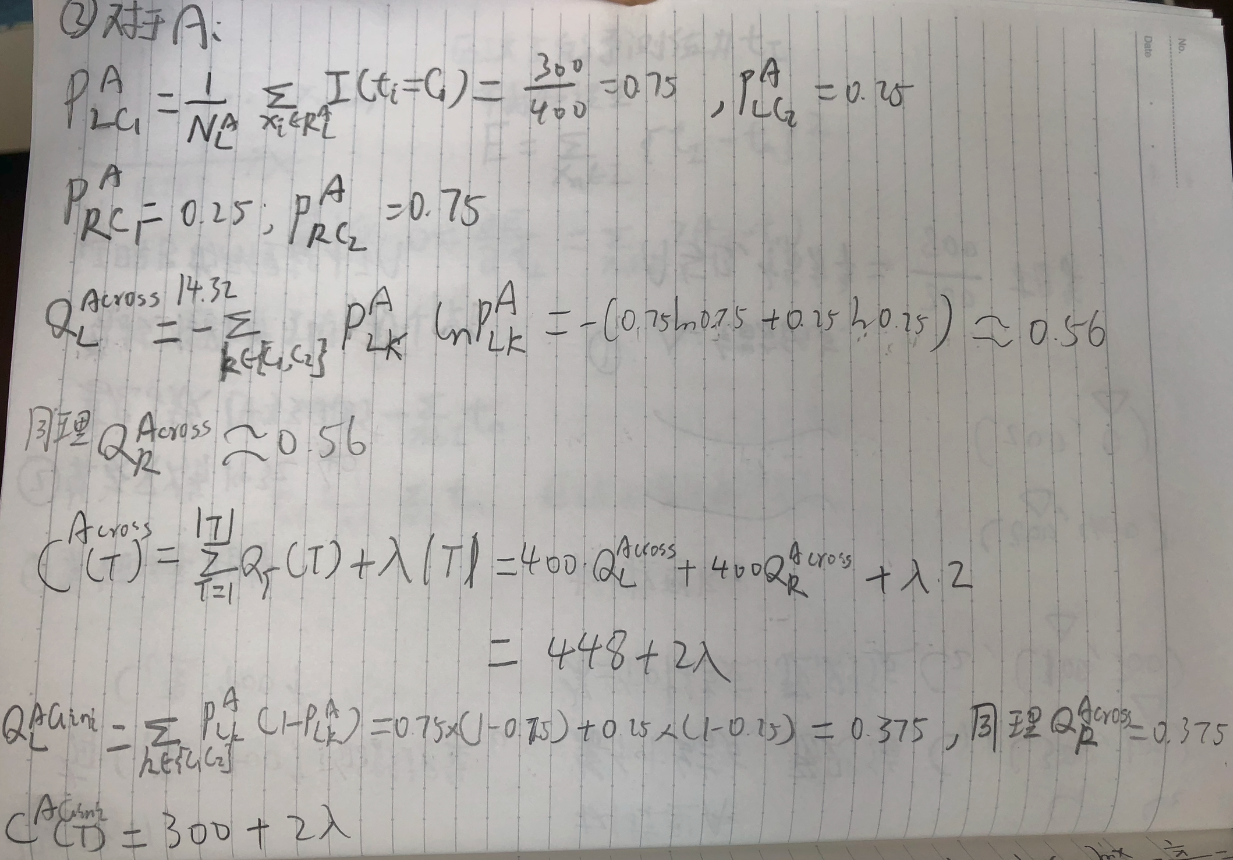 ③对于A:
P^A_{LC_1} = \frac{1}{N^A_L} \sum_{x_i∈R^A_L} I(t_i=C_1) = \frac{300}{400} = 0.75 , P^A_{LC_2} = 0.25
P^A_{RC_1} = 0.25 ; P^A_{RC_2} = 0.75
Q_L^{Across} 14.32 = -\sum_{k∈{C_1,C_2}} P^A_{LK} ln P^A_{LK} = -(0.75ln0.75 + 0.25ln0.25) ≈ 0.56
同理 Q_R^{Across} ≈ 0.56
C^{Across}(T) = \sum_{T=1}^{|T|} Q_T(T) + λ|T| = 400·Q_L^{Across} + 400Q_R^{Across} + λ·2
= 448+2λ
Q_L^{AGini} = \sum_{k∈{C_1,C_2}} P^A_{Lk} (1-P^A_{Lk}) = 0.75×(1-0.75) + 0.25×(1-0.25) = 0.375 , 同理 Q_R^{Across} = 0.375
C^{AGini}(T) = 300 + 2λ
No.
Date